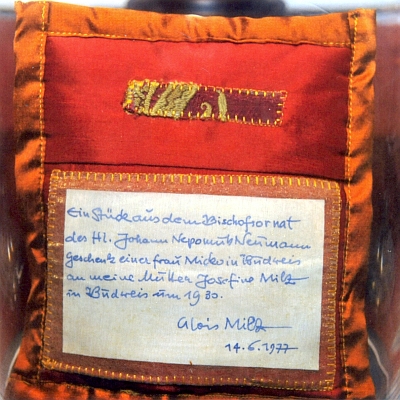 Ein Stück aus dem Bischofsornat
des Hl. Johann Nepomuk Neumann
geschenk einer Frau Micko in Budweis
an meine Mutter Josefine Milz
in Budweis um 1930.
Alois Milz
14.6.1977